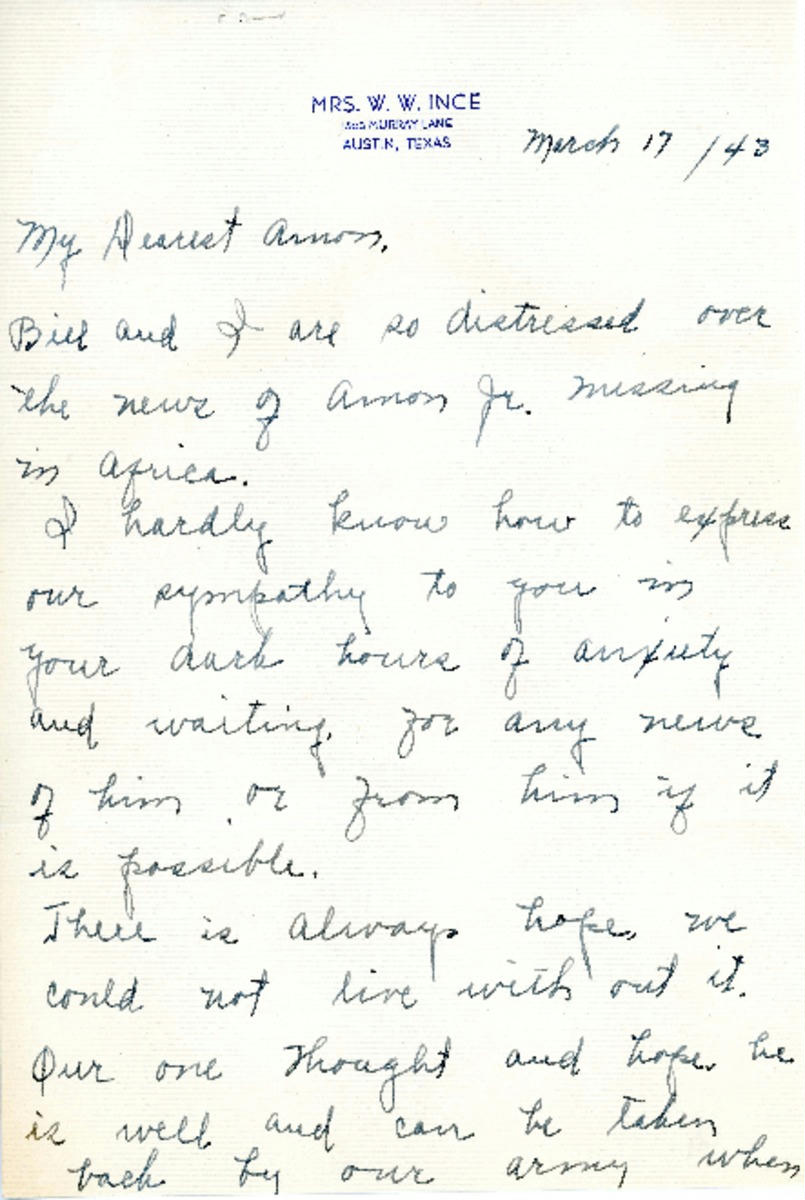 MRS. W. W. INCE
MURRAY LANE
AUSTIN, TEXAS
March 17 /43
My Dearest Amon,
Bill and I are so distressed over
the news of Amon Jr. missing
in Africa.
I hardly know how to express
our sympathy to you in
your dark hours of anxiety
and waiting, for any news
of him or from him if it
is possible.
There is always hope, we
could not live with out it.
Our one thought and hope, he
is well and can be taken
back by our army when